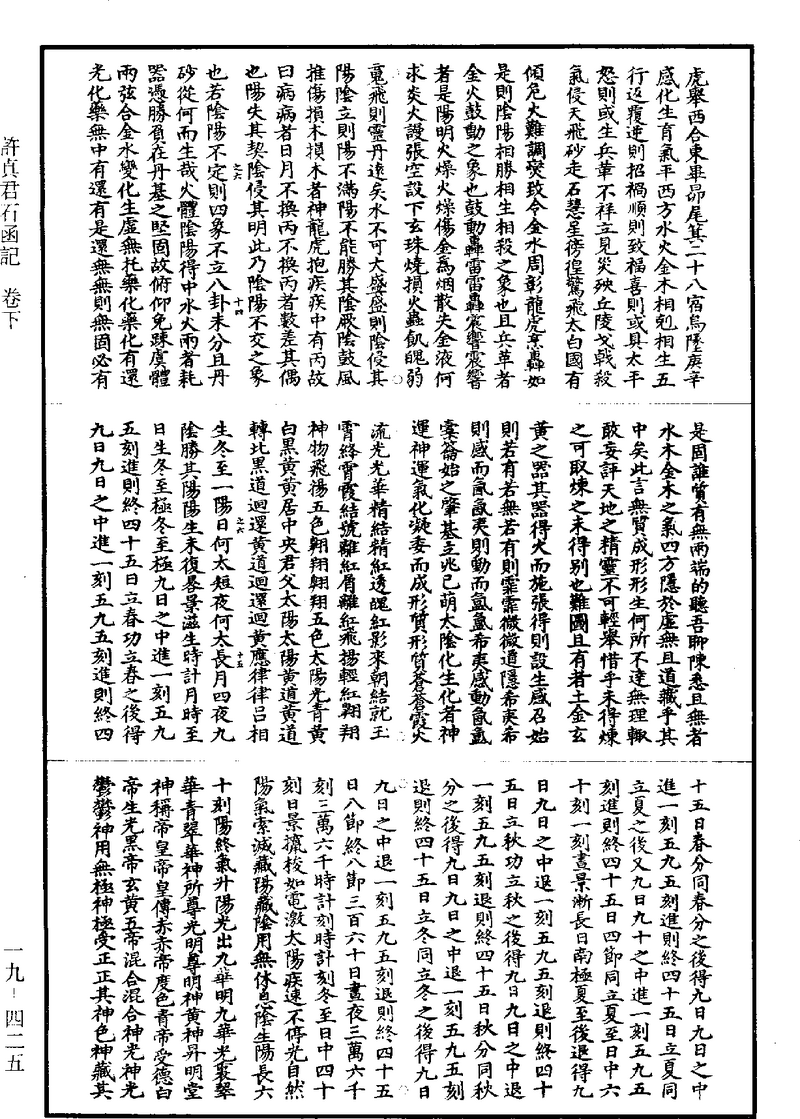 虎舉西合東畢昴尾箕二十八宿烏墜庚辛
感化生育氣平西方水火金木相剋相生五
行返覆逆則招禍順則致福喜則或具太平
怒則或生兵革不祥立見災殃丘陵戈戟殺
氣侵天飛砂走石慧星徬徨驚飛太白國有
傾危火難調燮致令金水周彰龍虎烹轟如
是則陰陽相勝相生相殺之象也且兵革者
金火鼓動之象也鼓動轟雷雷轟震響震響
者是陽明火燥火燥傷金為烟散失金液何
求炎火謾張空設下玄珠燒損火蟲飢魄弱
䰟飛則靈丹遠矣水不可大盛盛則陰侵其
陽陰立則陽不滿陽不能勝其陰厥陰鼓風
推傷損木損木者神龍虎抱疾疾中有丙故
曰病病者日月不換丙不換丙者數差其偶
也陽失其契陰侵其明此乃陰陽不交之象
也若陰陽不定則四象不立八卦未分且丹
砂從何而生哉火體陰陽得中水火兩者耗
器憑勝負在丹基之堅固故俯仰免踈虞體
兩弦合金水變化生虛無托藥化藥化有還
光化藥無中有還有是還無無則無固必有
是固誰質有無兩端的聽吾聊陳悉且無者
水木金禾之氣四方隱於虛無且道藏乎其
中矣此言無質成形形生何所不達無理輙
敢妄評天地之精靈不可輕舉惜乎未得煉
之可取煉之未得别也難圖且有者土金玄
黄之器其器得火而施張得則設生感召始
則若有若無若有則霏霏微微道隱希夷希
則感而氤氤夷則動而氳氳希夷感動氤氳
橐籥始之肇基立兆已萌太陰化生化者神
運神運氣化凝委而成形質形質蒼蒼霞火
流光光華精結精紅透魄紅影來朝結就玉
霄絳霄霞結號離紅屑離紅飛揚輕紅翔翔
神物飛揚五色翔翔翔翔五色太陽光青黄
白黑黄黄居中央君父太陽太陽黄道黄道
轉北黑道迴還黄道迴還迴黄應律律吕相
生冬至一陽日何太短夜何太長月四夜九
陰勝其陽陽生未復晷景滋生時計月時至
日生冬至極冬至極九日之中進一刻五九
五刻進則終四十五日立春功立春之後得
九日九日之中進一刻五九五刻進則終四
十五日春分同春分之後得九日九日之中
進一刻五九五刻進則終四十五日立夏同
立夏之後又九日九十之中進一刻五九五
刻進則終四十五日四節同立夏至日中六
十刻一刻晝景漸長日南極夏至後退得九
日九日之中退一刻五九五刻退則終四十
五日立秋功立秋之後得九日九日之中退
一刻五九五刻退則終四十五日秋分同秋
分之後得九日九日之中退一刻五九五刻
退則終四十五日立冬同立冬之後得九日
九日之中退一刻五九五刻退則終四十五
日八節終八節三百六十日晝夜三萬六千
刻三萬六千時計刻時計刻冬至日中四十
刻日景攛梭如電激太陽疾速不停光自然
陽氣索滅藏陽藏陰用無休息陰生陽長六
十刻陽終氣升陽光出九華明九華光裛翠
華青翠華神所尊光明尊明神黄神昇明堂
神稱帝皇帝皇傳赤赤帝度色青帝受德白
帝生光黑帝玄黄五帝混合混合神光神光
鬱鬱神用無極神極受正正其神色神藏其
許真君石函記　卷下
一九-四二五